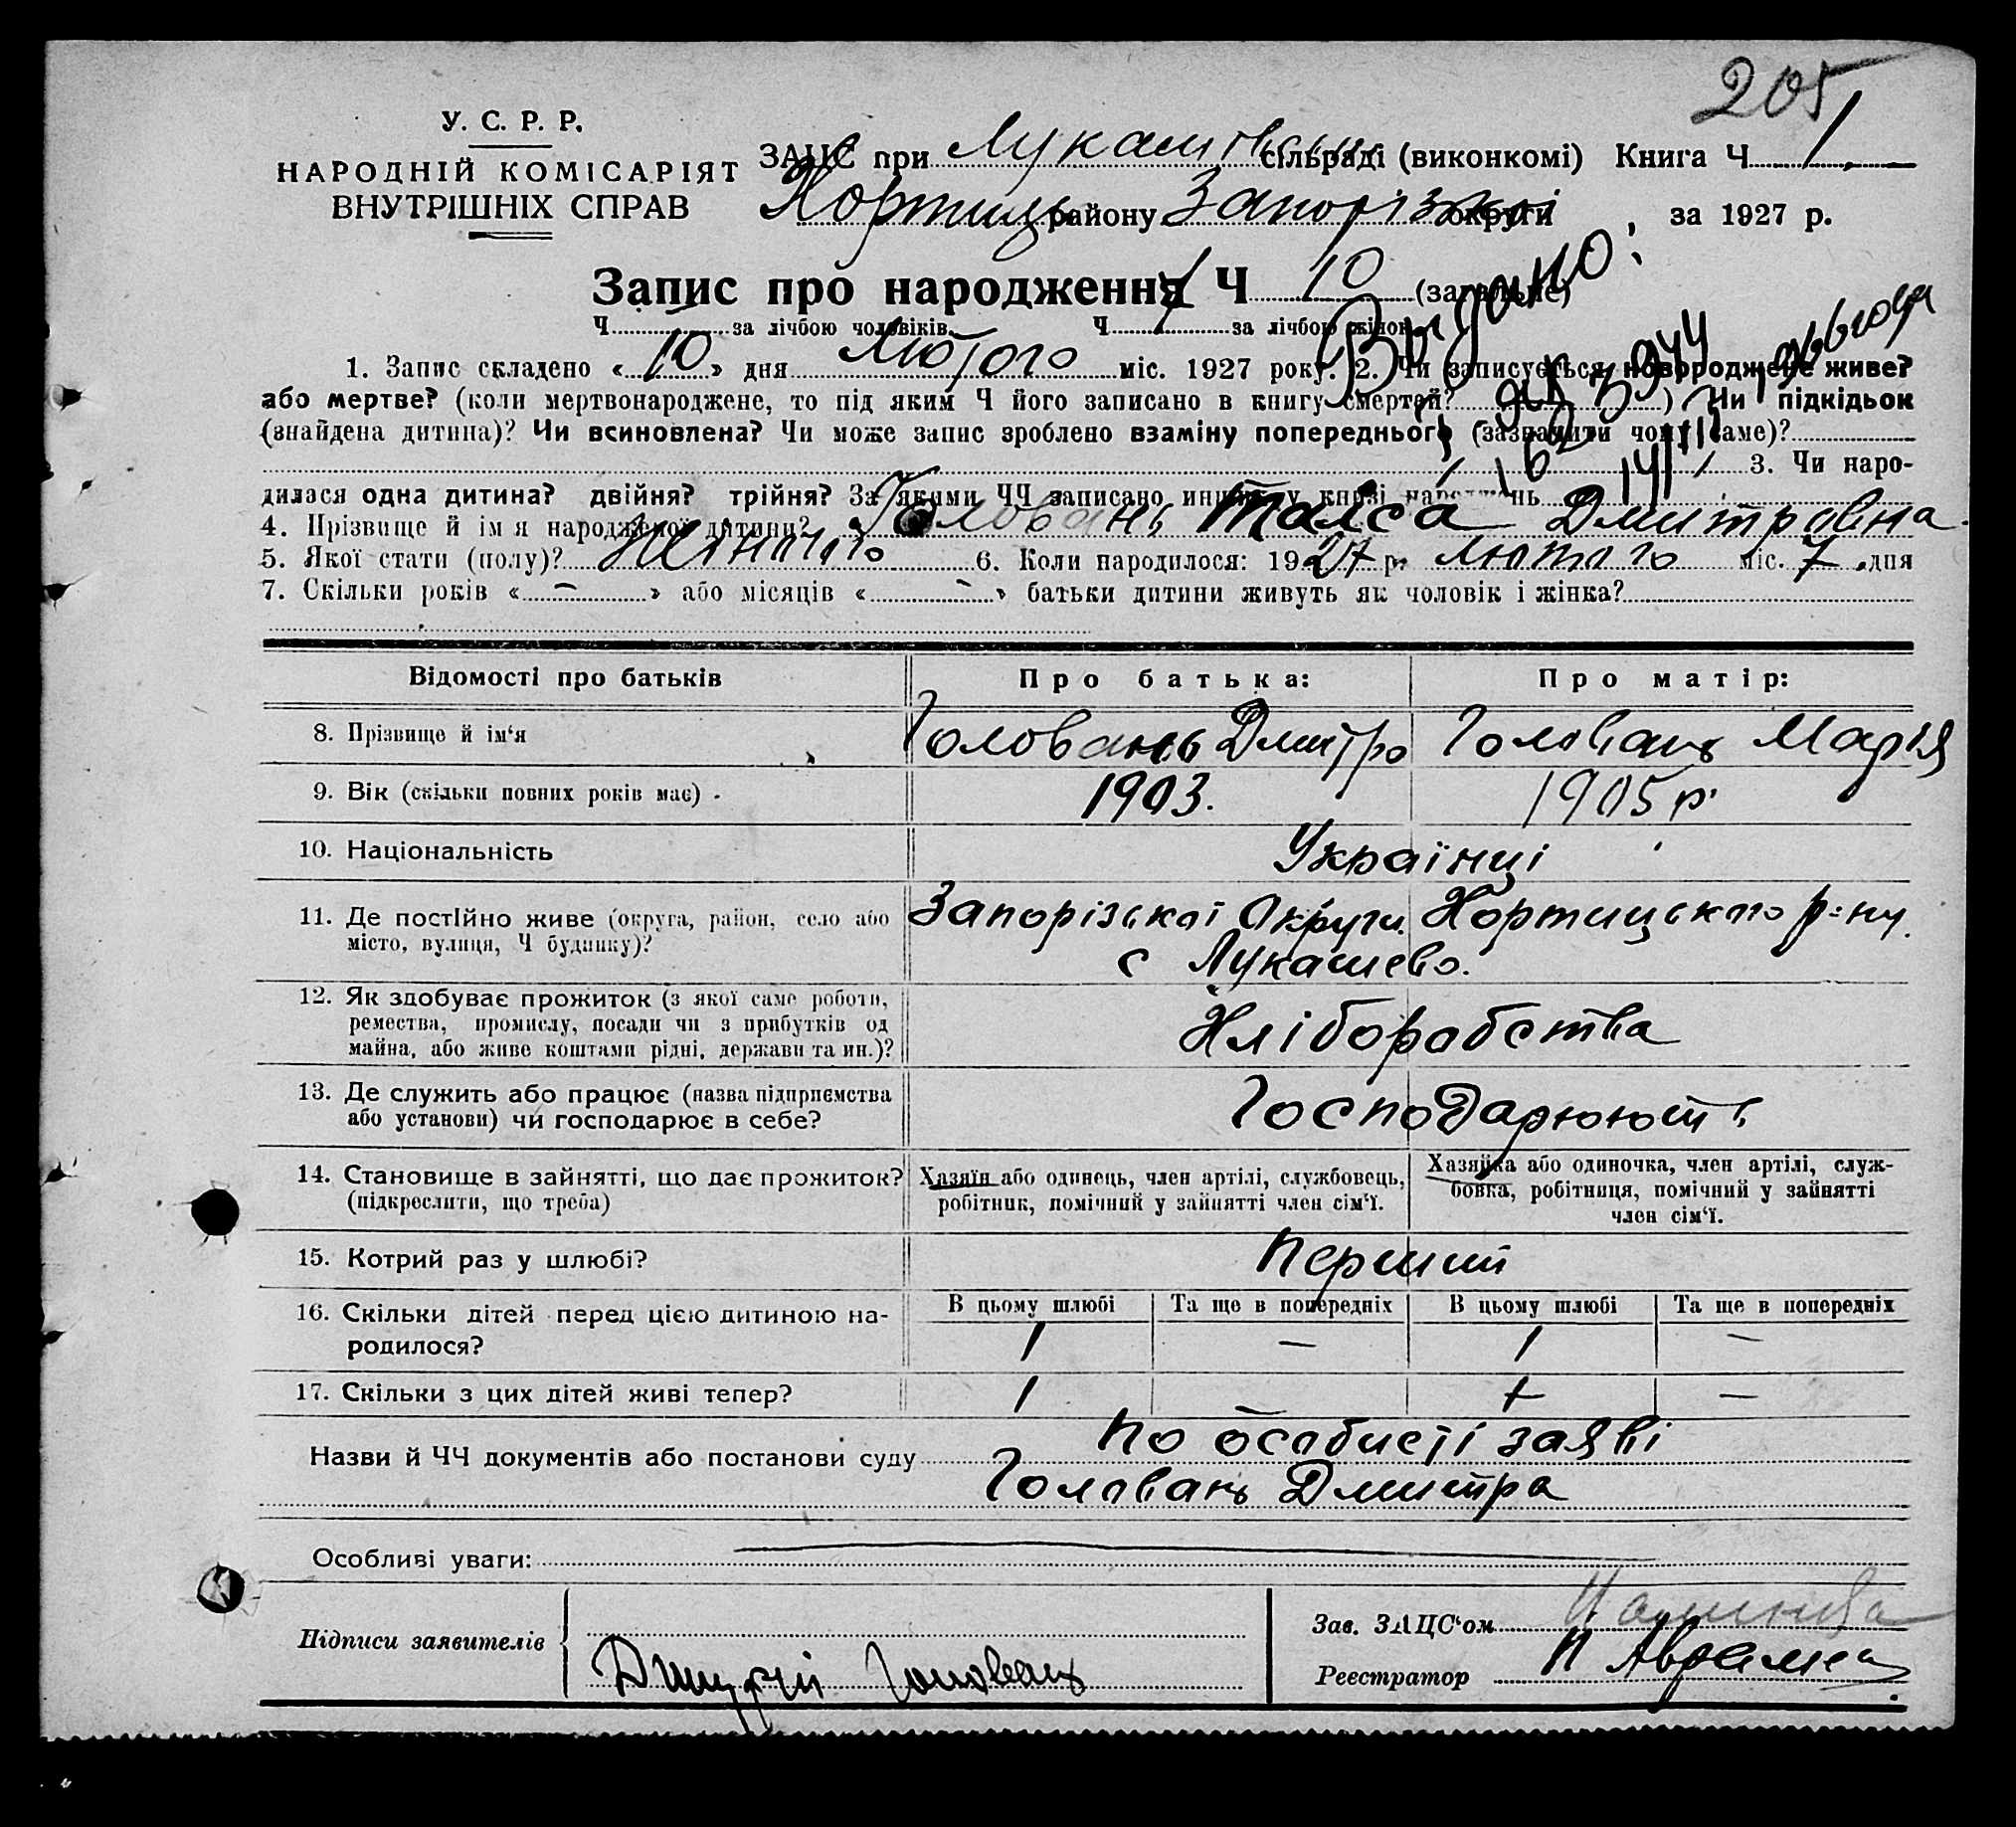 205
У. С. Р. Р.
НАРОДНІЙ КОМІСАРІЯТ
ВНУТРІШНІХ СПРАВ
ЗАЦС при Лукашівськ сільраді (виконкомі) Книга Ч 1
Хортиць району Запорізької округи за 1927 р.
Запис про народження Ч 10 (загальне)
Ч — за лічбою чоловіків. Ч за лічбою жінок
Видано:
1. Запис складено «10» дня Лютого міс. 1927 року. 2. Чи записується новороджене живе?
або мертве? (коли мертвонароджене, то під яким Ч його записано в книгу смертей? ) Чи підкідьок
(знайдена дитина)? Чи всиновлена? Чи може запис зроблено взаміну попереднього (зазначити чому саме)?
3. Чи наро-
дилася одна дитина? двійня? трійня? За якими ЧЧ записано инших у книзі народжень
4. Прізвище й ім я народженої дитини? Головань Таїса Дмитровна
5. Якої стати (полу)? Жіночого 6. Коли народилося: 1927 р. лютого міс. 7 дня
7. Скільки років « — » або місяців « — » батьки дитини живуть як чоловік і жінка?
Відомості про батьків Про батька: Про матір:
8. Прізвище й ім‘я Головань Дмитро Головань Марія
9. Вік (скільки повних років має) 1903. 1905 р.
10. Національність Українці
11. Де постійно живе (округа, район, село або Запорізької Округи Хортицького р-ну.
місто, вулиця, Ч будинку)? с Лукашево.
12. Як здобуває прожиток (з якої саме роботи,
ремества, промислу, посади чи з прибутків од Хліборобства
майна, або живе коштами рідні, держави та ин.)?
13. Де служить або працює (назва підприємства Господарюють
або установи) чи господарює в себе?
14. Становище в зайнятті, що дає прожиток? Хазяїн або одинець, член артілі, службовець, Хазяйка або одиночка, член артілі, служ-
(підкреслити, що треба) робітник, помічний у зайнятті член сім‘ї. бовка, робітниця, помічний у зайнятті
член сім‘ї.
15. Котрий раз у шлюбі? Перший
16. Скільки дітей перед цією дитиною на- В цьому шлюбі Та ще в попередніх В цьому шлюбі Та ще в попередніх
родилося? 1 — 1 —
17. Скільки з цих дітей живі тепер? 1 — 1 —
Назви й ЧЧ документів або постанови суду По особисті заяві
Головань Дмитра
Особливі уваги:
Підписи заявителів Дмитрій Головань
Зав. ЗАЦС‘ом
Реєстратор П Авраменко